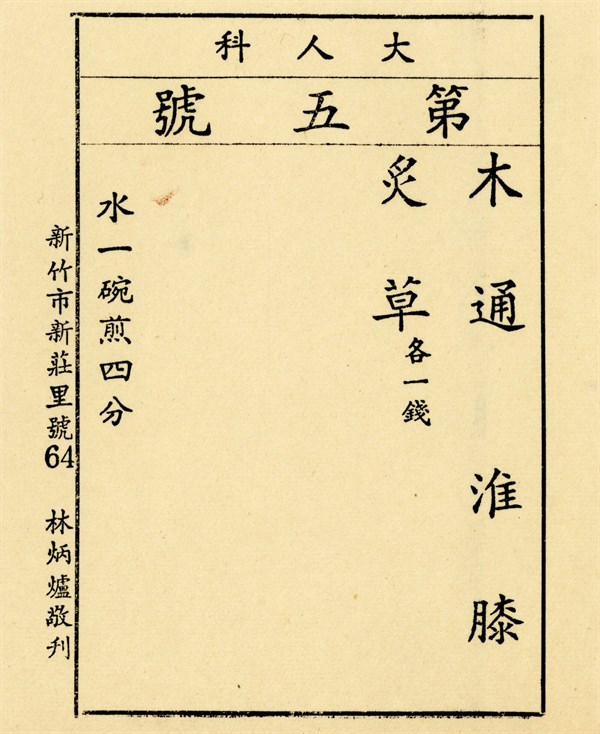 大人科
第五號
木通 淮膝
炙草各一錢
水一碗煎四分
新竹市新莊里號64 林炳爐敬刋